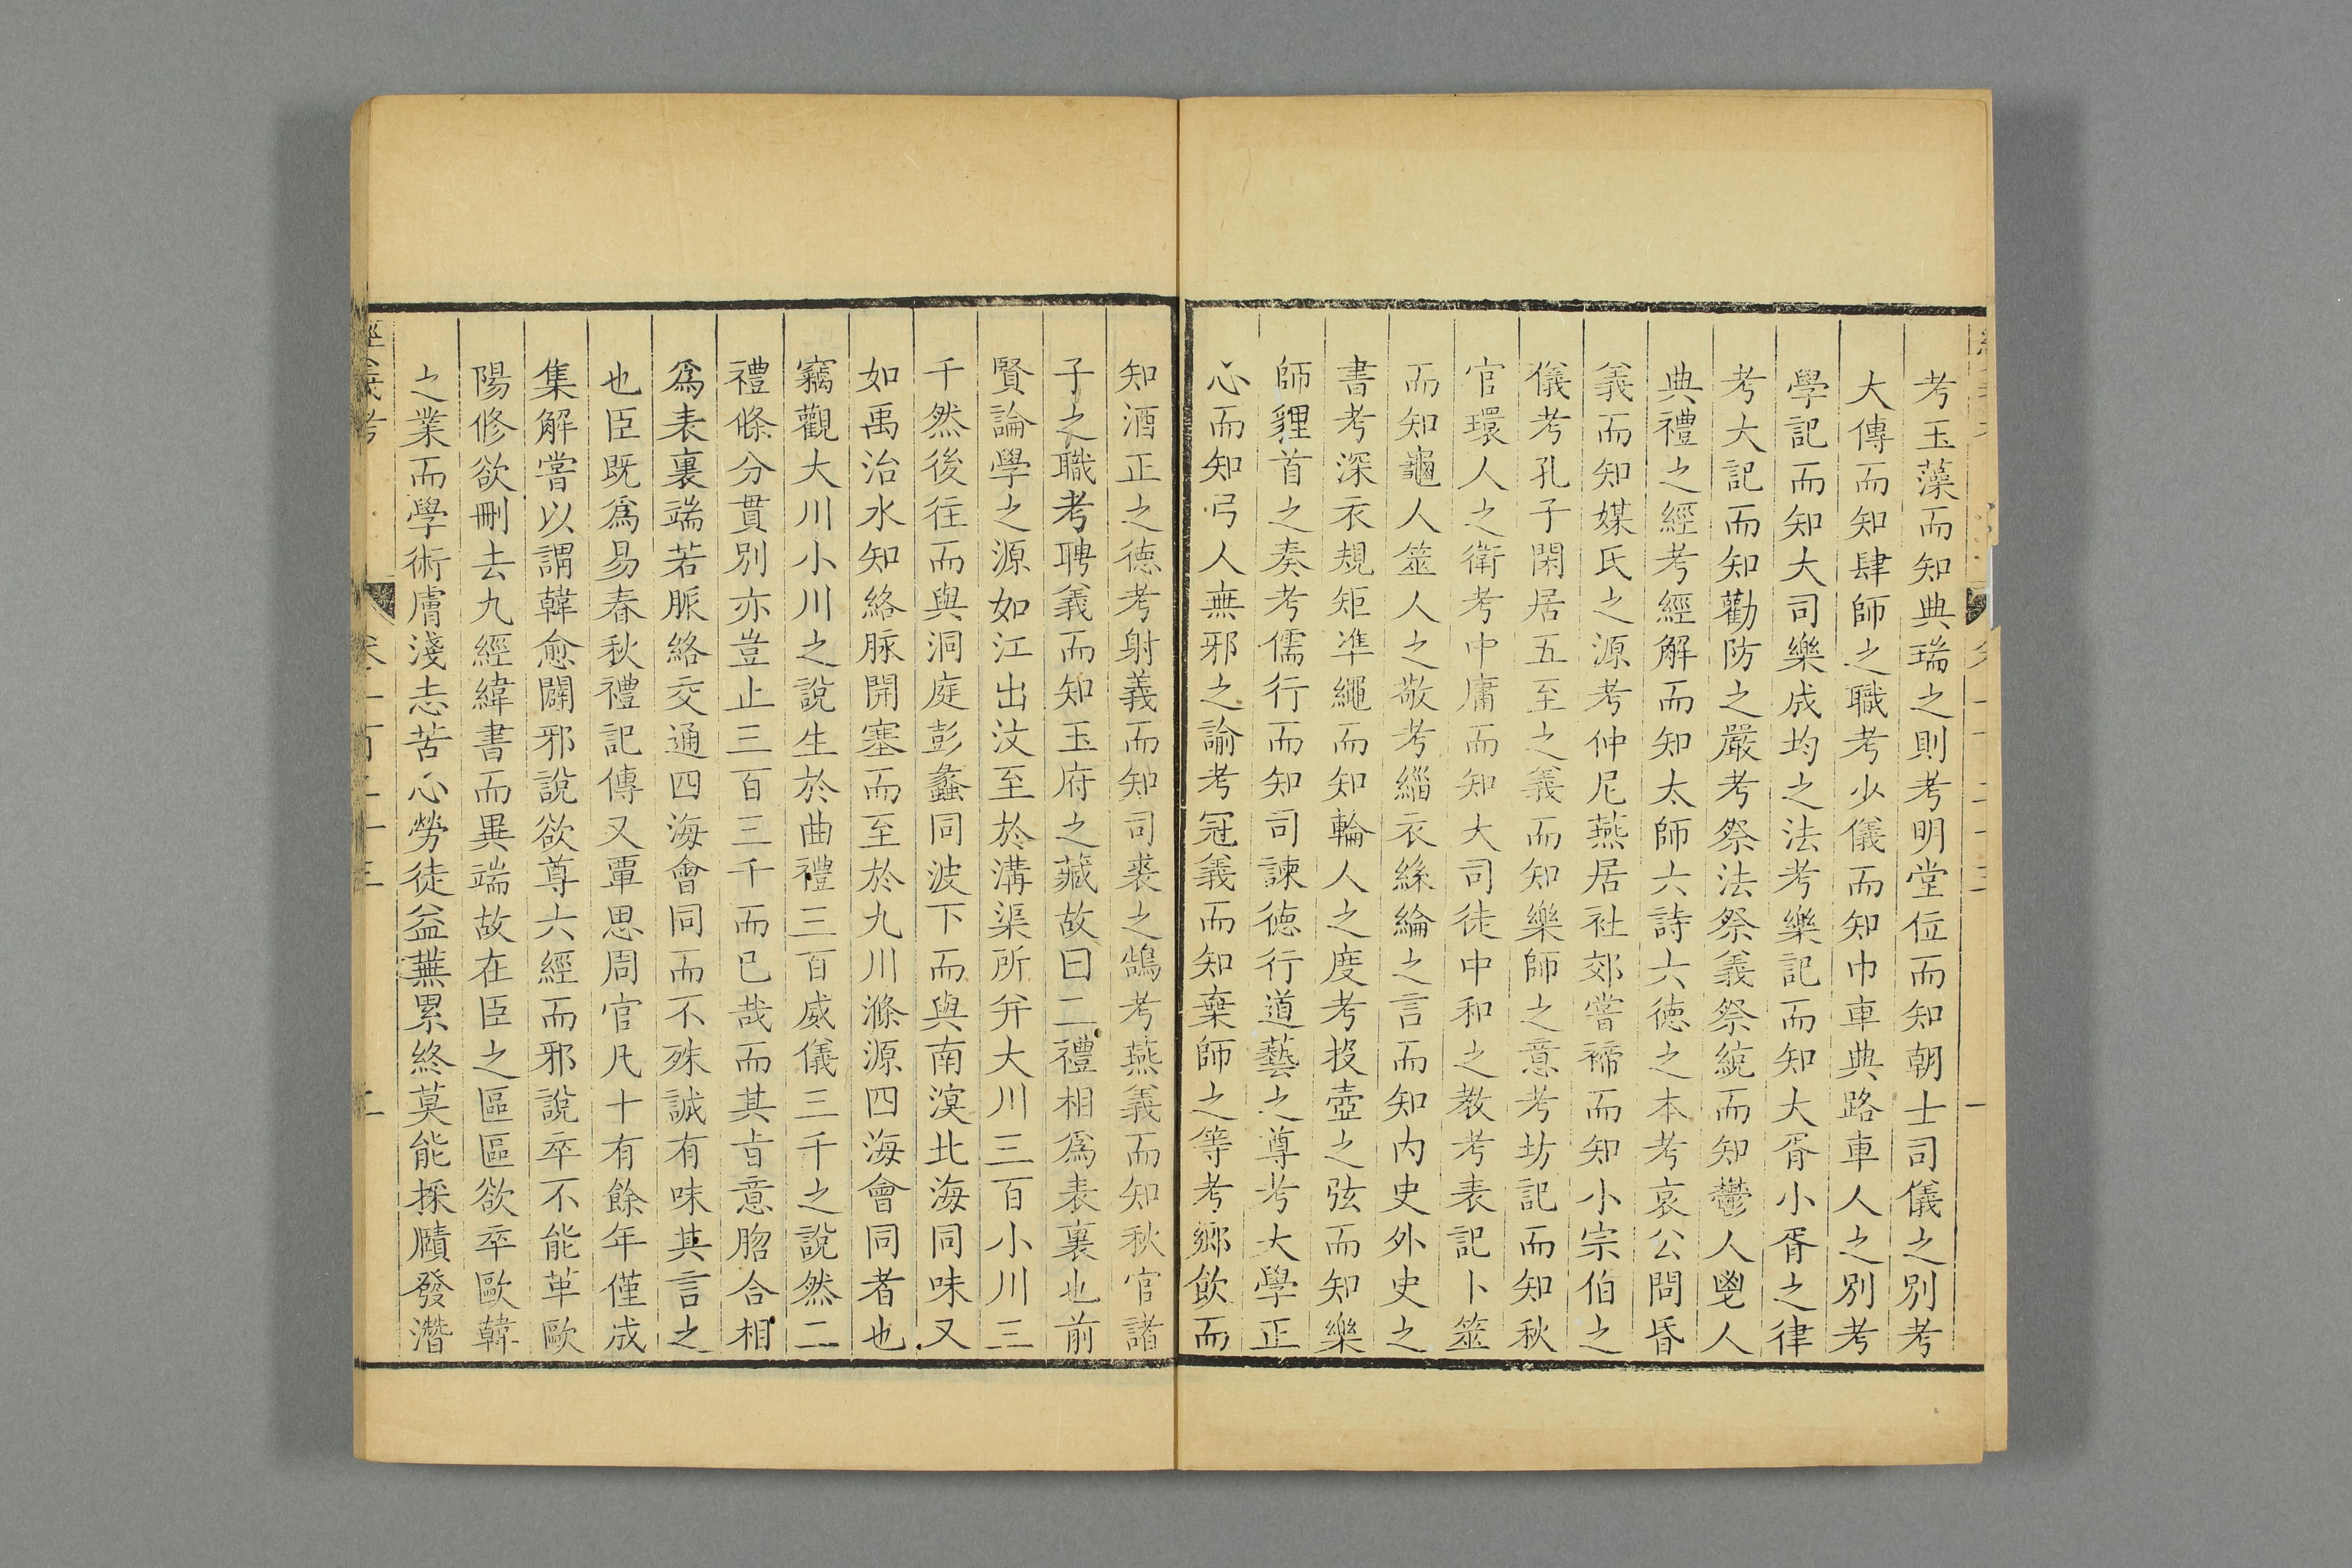 考玉藻而知典瑞之則考明堂位而知朝士司儀之別考
大傳而知肆師之職考少儀而知巾車典路車人之別考
學記而知大司樂成均之法考樂記而知大胥小胥之律
考大記而知勸防之嚴考祭法祭義祭統而知鬱人鬯人
典禮之經考經解而知太師六詩六徳之本考哀公問昏
義而知媒氏之源考仲尼燕居社郊嘗禘而知小宗伯之
儀考孔子閑居五至之義而知樂師之意考坊記而知秋
官環人之衛考中庸而知大司徒中和之教考表記卜筮
而知龜人筮人之敬考緇衣絲綸之言而知内史外史之
書考深衣規矩凖繩而知輪人之度考投壺之弦而知樂
師貍首之奏考儒行而知司諫徳行道藝之尊考大學正
心而知弓人無邪之諭考冠義而知棄師之等考鄉飲而
知酒正之徳考射義而知司裘之鵠考燕義而知秋官諸
子之職考聘義而知玉府之藏故曰二禮相爲表裏也前
賢論學之源如江出汶至於溝渠所并大川三百小川三
千然後往而與洞庭彭蠡同波下而與南溟北海同味又
如禹治水知絡脉開塞而至於九川滌源四海會同者也
竊觀大川小川之說生於曲禮三百威儀三千之說然二
禮條分貫別亦豈止三百三千而已哉而其㫖意脗合相
爲表裏端若脈絡交通四海會同而不殊誠有味其言之
也臣既爲易春秋禮記傳又覃思周官凡十有餘年僅成
集解嘗以謂韓愈闢邪說欲尊六經而邪說卒不能革歐
陽修欲刪去九經緯書而異端故在臣之區區欲卒歐韓
之業而學術膚淺志苦心勞徒益蕪累終莫能探賾發潛
經義考
卷一百二十三
二